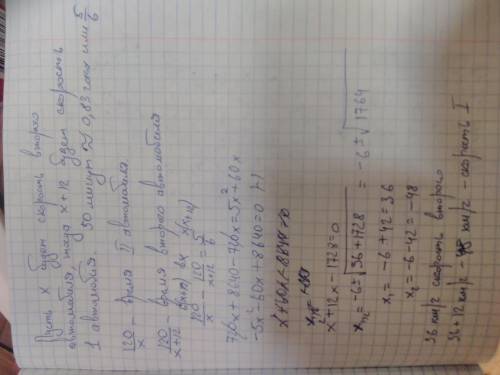 Пусть x будет скорость второго
автомобиля, тогда x+12 будет скорость
1 автомобиля 50 минут ≈ 0,83 часа или 5/6
120/x - время II автомобиля
120/(x+12) время второго автомобиля
120/x - 120/(x+12) = 5/6
720x+8640-720x=5x²+60x
-5x²-60x+8640=0
x²+12x-1728=0
x₁,₂=-6±√(36+1728) = -6±√1764
x₁=-6+42=36
x₂=-6-42=-48
36 км/ч скорость второго
36+12 км/ч 48 км/ч - скорость I